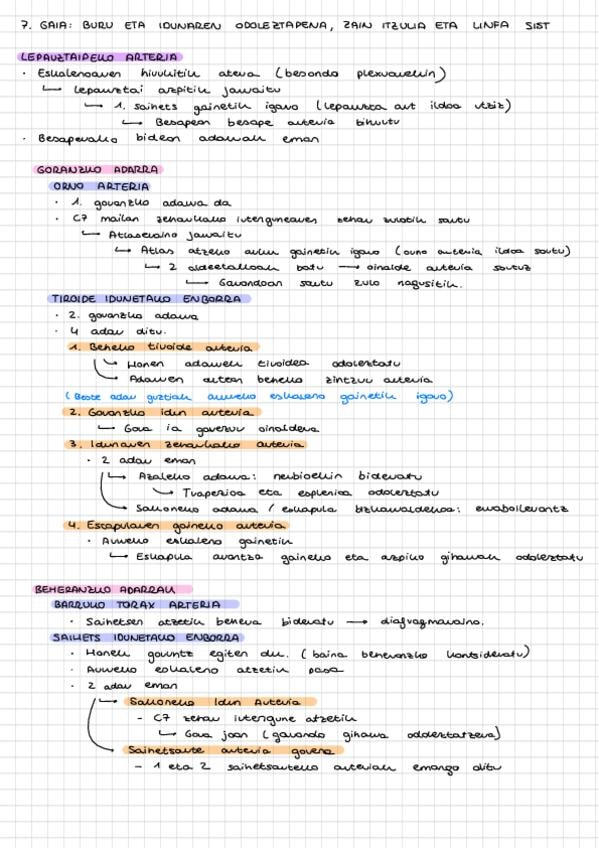 7. GAIA: BURU ETA IDUNAREN ODOLEZTAPENA, ZAIN ITZULIA ETA LINFA SIST
LEPAUZTAIPEKO ARTERIA
· Eskalenoaren hirukitik atera (besondo plexuarekin)
↳ lepauztai azpitik jarraitu
↳ 1. saihets gainetik igaro (lepauzta art ildoa utziz)
↳ Besapean besape arteria bihurtu
· Besaperako bidean adarrak eman
GORANZKO ADARRA
ORNO ARTERIA
· 1. goranzko adarra da
· C7 mailan zeharkako irtengunearen zehar zulotik sartu
↳ Atlaseraino jarraitu
↳ Atlas atzeko arku gainetik igaro (orno arteria ildoa sortu)
↳ 2 aldeetakoak batu → oinalde arteria sortuz
↳ Garondoan sartu zulo nagusitik.
TIROIDE IDUNETAKO ENBORRA
· 2. goranzko adarra
· 4 adar ditu.
1. Beheko tiroide arteria
↳ Honen adarrek tiroidea odoleztatu
↳ Adarren artean beheko zintzur arteria
(Beste adar guztiak aurreko eskaleno gainetik igaro)
2. Goranzko idun arteria
↳ Gora ia garezur oinaldera
3. Idunaren zeharkako arteria
· 2 adar eman
↳ Azaleko adarra: nerbioekin bideratu
↳ Trapezioa eta esplenioa odoleztatu
↳ Sakoneko adarra / eskapula bizkarraldekoa: erraboilerantz
4. Escapularen gaineko arteria
· Aurreko eskaleno gainetik
↳ Eskapula arantza gaineko eta azpiko giharrak odoleztatu
BEHERANZKO ADARRAK
BARRUKO TORAX ARTERIA
· Saihetsen atzetik behera bideratu → diafragmaraino.
SAIHETS IDUNETAKO ENBORRA
· Honek gorantz egiten du. (baina beheranzko kontsideratu)
· Aurreko eskaleno atzetik pasa
· 2 adar eman
↳ Sakoneko Idun Arteria
- C7 zehar irtengune atzetik
↳ Gora joan (garondo giharra odoleztatzera)
↳ Saihetsarte arteria gorena
- 1 eta 2 saihetsarteko arteriak emango ditu